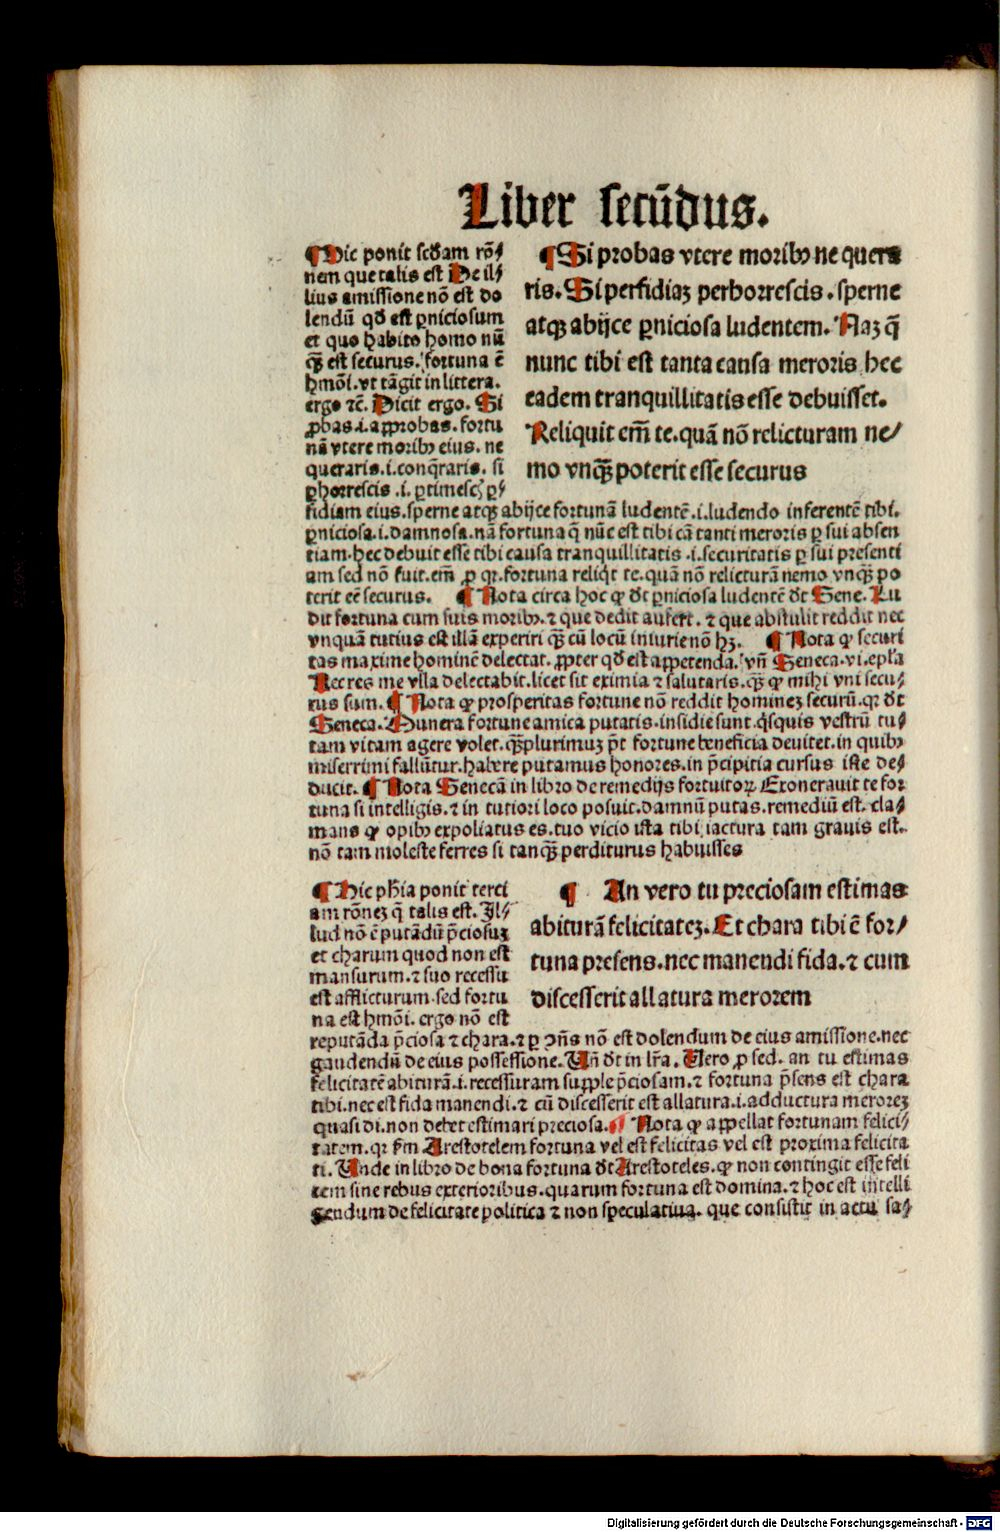 Liber secūdus.
¶ Hic ponit scđam rō⸗
nem que talis est De il⸗
lius amissione nō est do
lendū qđ est ꝑniciosum
et quo habito homo nū
qꝫ̄ est securus. fortuna ē
hmōi. vt tāgit in littera.
ergo ⁊c̄. Dicit ergo. Si
ꝓbas .i. approbas. fortu
nā vtere moribꝰ eius. ne
queraris .i. conq̄raris. si
ꝑhorrescis .i. ꝑtimescꝭ ꝑ⸗
fidiam eius. sperne atqꝫ abijce fortunā ludentē .i. ludendo inferentē tibi.
ꝑniciosa .i. damnosa. nā fortuna q̄ nūc est tibi cā tanti meroris ꝑ sui absen
tiam. hec debuit esse tibi causa tranquillitatis .i. securitatis ꝑ sui presenti
am sed nō fuit. em̄ ꝓ qꝛ. fortuna reliq̇t te. quā nō relicturā nemo vnqꝫ̄ po
terit eē securus. ¶ Nota circa hoc ꝙ đt ꝑniciosa ludentē đt Sene. Lu
dit fortuna cum suis moribꝰ. ⁊ que dedit aufert. ⁊ que abstulit reddit nec
vnquā tutius est illā experiri qꝫ̄ cū locū iniurie nō hꝫ. ¶ Nota ꝙ securi
tas maxime hominē delectat. ꝓpter qđ est appetenda. vn̄ Seneca. vi. epl̄a
Nec res me vlla delectabit. licet sit eximia ⁊ salutaris. qꝫ̄ ꝙ mihi vni secu⸗
rus sum. ¶ Nota ꝙ prosperitas fortune nō reddit hominez securū. qꝛ đt
Seneca. Munera fortune amica putatis. insidie sunt. q̇squis vestrū tu⸗
tam vitam agere volet. qꝫ̄plurimuꝫ pt̄ fortune beneficia deuitet. in quibꝰ
miserrimi fallūtur. habere putamus honores. in p̄cipitia cursus iste de⸗
ducit. ¶ Nota Senecā in libro de remedijs fortuitoꝝ. Exonerauit te for
tuna si intelligis. ⁊ in tutiori loco posuit. damnū putas. remediū est. cla⸗
mans ꝙ opibꝰ expoliatus es. tuo vicio ista tibi iactura tam grauis est.
nō tam moleste ferres si tanqꝫ̄ perditurus habuisses
¶ Si probas vtere moribꝰ ne quera
ris. Si perfidiaꝫ perhorrescis. sperne
atqꝫ abijce ꝑniciosa ludentem. Naꝫ q̄
nunc tibi est tanta causa meroris hec
eadem tranquillitatis esse debuisset.
Reliquit em̄ te. quā nō relicturam ne⸗
mo vnqꝫ̄ poterit esse securus
¶ Hic ph̄ia ponit terci
am rōneꝫ q̄ talis est. Il⸗
lud nō ē putādū p̄ciosuꝫ
et charum quod non est
mansurum. ⁊ suo recessu
est afflicturum. sed fortu
na est hmōi. ergo nō est
reputāda p̄ciosa ⁊ chara. ⁊ ꝑ ↄn̄s nō est dolendum de eius amissione. nec
gaudendū de eius possessione. Un̄ đt in lr̄a. Uero ꝓ sed. an tu estimas
felicitatē abiturā .i. recessuram supple p̄ciosam. ⁊ fortuna p̄sens est chara
tibi. nec est fida manendi. ⁊ cū discesserit est allatura .i. adductura meroreꝫ
quasi di. non debet estimari preciosa. ¶ Nota ꝙ appellat fortunam felici⸗
tatem. qꝛ fm̄ Arestotelem fortuna vel est felicitas vel est proxima felicita
ti. Unde in libro de bona fortuna đt Arestoteles. ꝙ non contingit esse feli
cem sine rebus exterioribus. quarum fortuna est domina. ⁊ hoc est intelli
gendum de felicitate politica ⁊ non speculatiua. que consistit in actu sa⸗
¶ An vero tu preciosam estimas
abiturā felicitateꝫ. Et chara tibi ē for⸗
tuna presens. nec manendi fida. ⁊ cum
discesserit allatura merorem
Digitalisierung gefördert durch die Deutsche Forschungsgemeinschaft - DFG